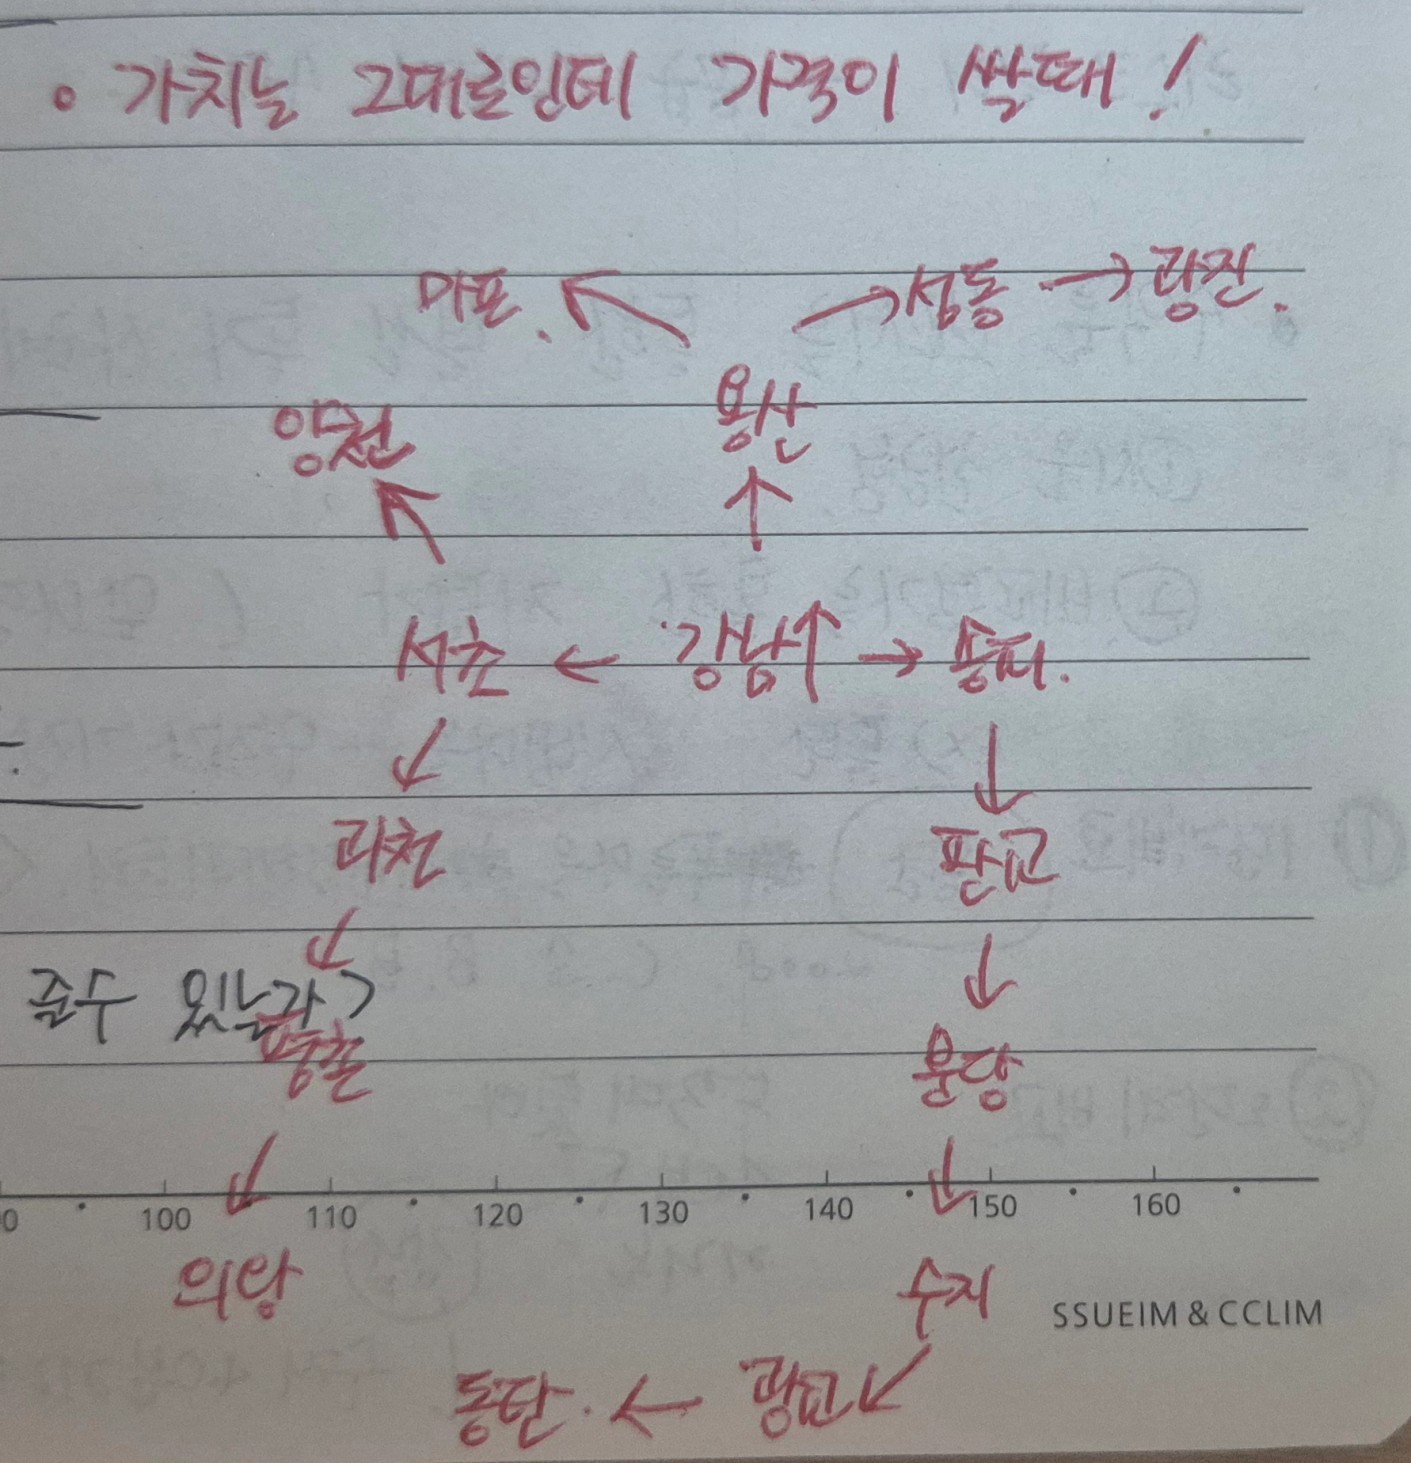 • 가치는 그대로인데 가격이 쌀때!
마포. ↖ → 성동 → 광진.
양천 용산
↖ ↑
서초 ← 강남↑ → 송파.
↙ ↓
과천 판교
↙ ↓
준수 있는가?
평촌 분당
↙ ↓
100 110 120 130 140 150 160
의왕 수지
SSUEIM & CCLIM
동탄. ← 광교 ↙